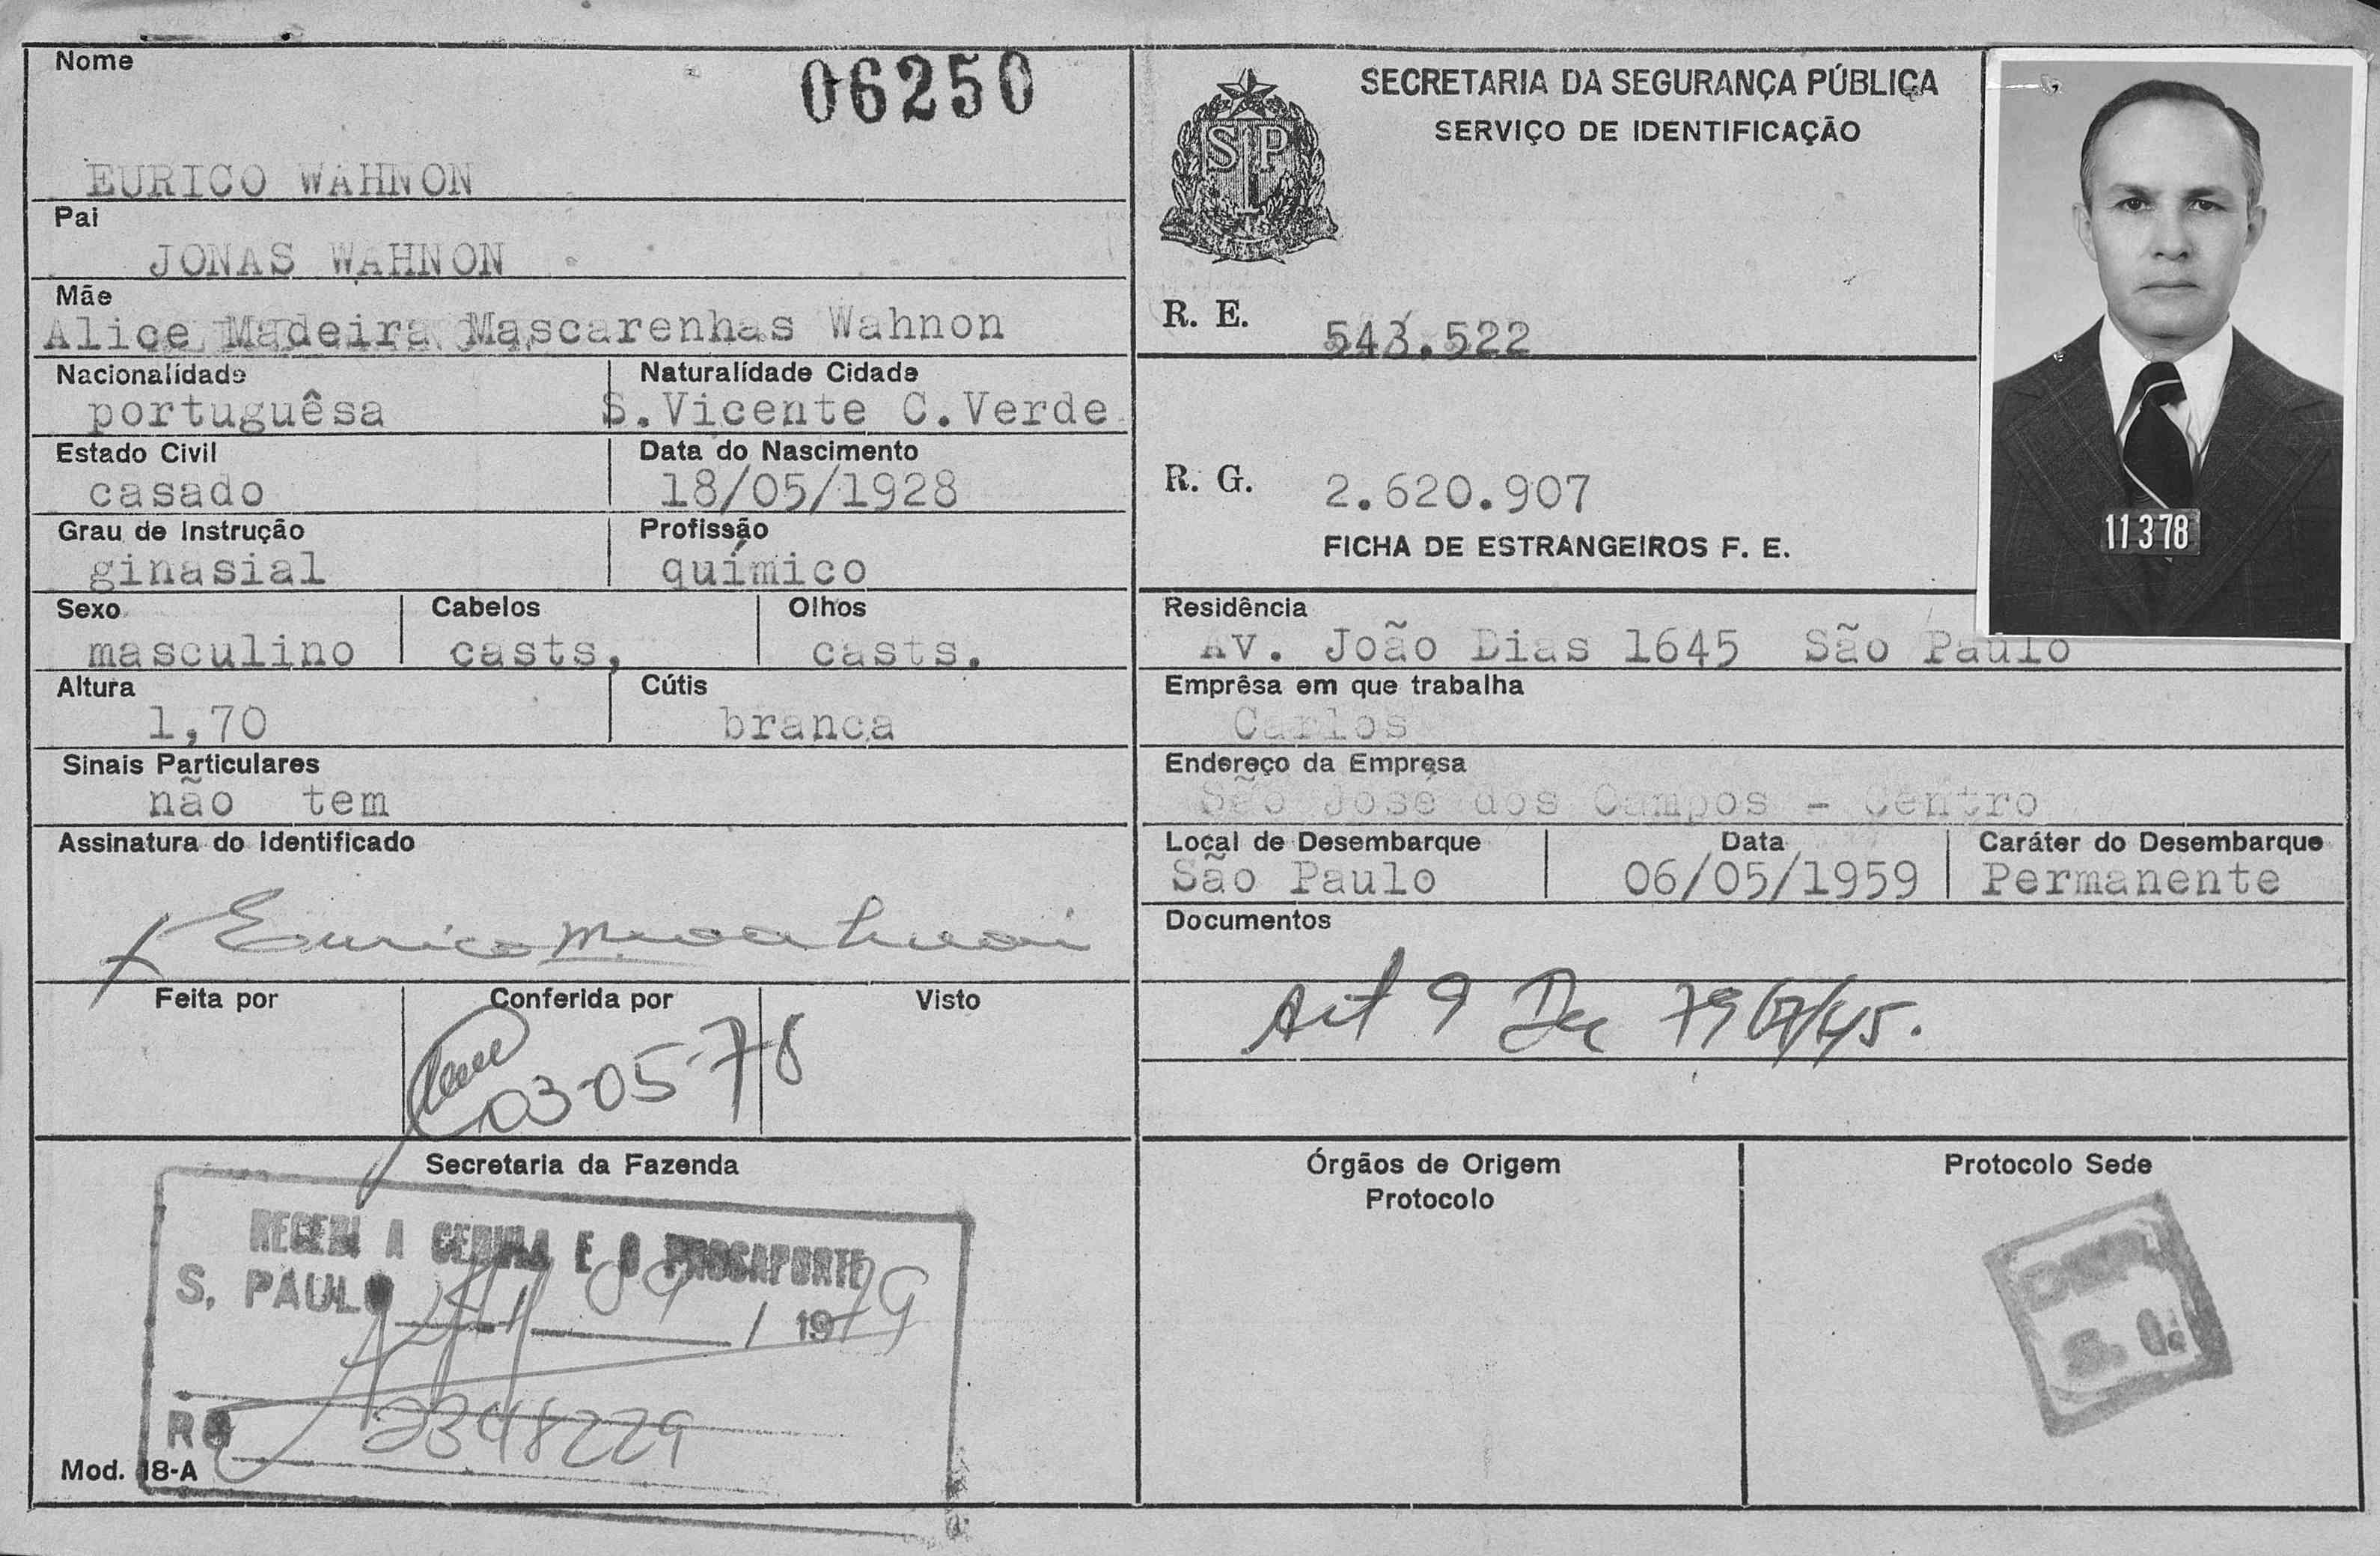 Nome
06250
EURICO WAHNON
Pai
JONAS WAHNON
Mãe
Alice Madeira Mascarenhas Wahnon
Nacionalidade
portuguêsa
Naturalidade Cidade
S.Vicente C.Verde
Estado Civil
casado
Data do Nascimento
18/05/1928
Grau de Instrução
ginasial
Profissão
químico
Sexo
masculino
Cabelos
casts,
Olhos
casts.
Altura
1,70
Cútis
branca
Sinais Particulares
não tem
Assinatura do Identificado
Eurico M.
Feita por
Conferida por
03-05-78
Visto
Secretaria da Fazenda
RECEBI A CEDULA E O
S. PAULO 09 / 1979
RG 2348229
Mod. 18-A
SECRETARIA DA SEGURANÇA PÚBLICA
SERVIÇO DE IDENTIFICAÇÃO
SP
R. E. 543.522
R. G. 2.620.907
FICHA DE ESTRANGEIROS F. E.
11 3 78
Residência
Av. João Dias 1645 São Paulo
Emprêsa em que trabalha
Carlos
Endereço da Emprêsa
São José dos Campos - Centro
Local de Desembarque
São Paulo
Data
06/05/1959
Caráter do Desembarque
Permanente
Documentos
Art 9 Dec 7967/45.
Órgãos de Origem
Protocolo
Protocolo Sede